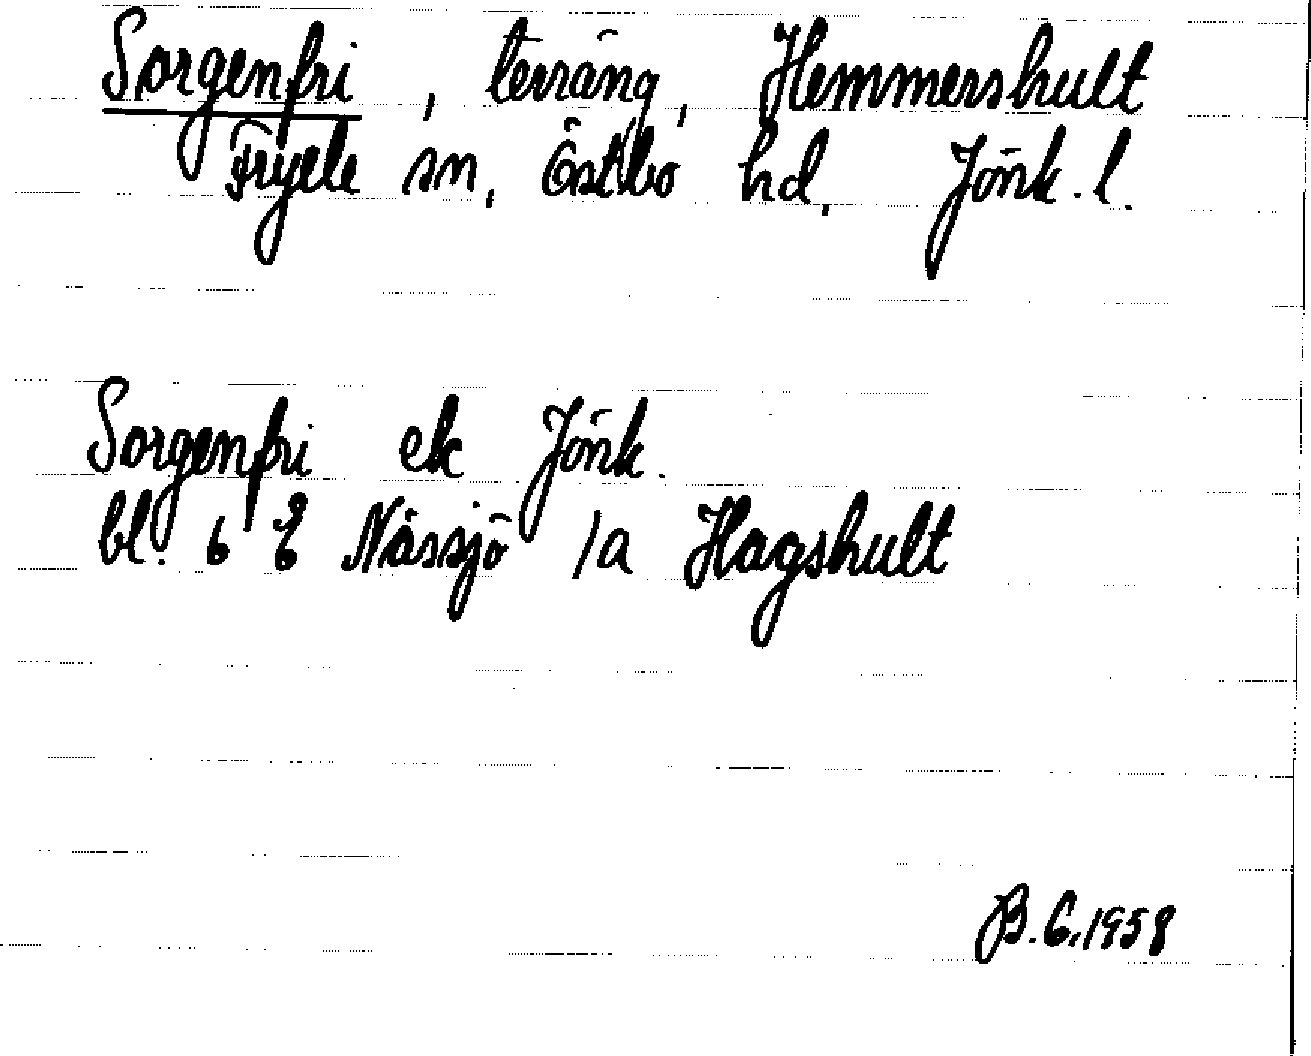 Sorgenfri, terräng, Hemmershult
Fryele sn, Östbo hd, Jönk. l.
Sorgenfri ek Jönk.
bl. 6 E Nässjö /a Hagshult
B.G.1958